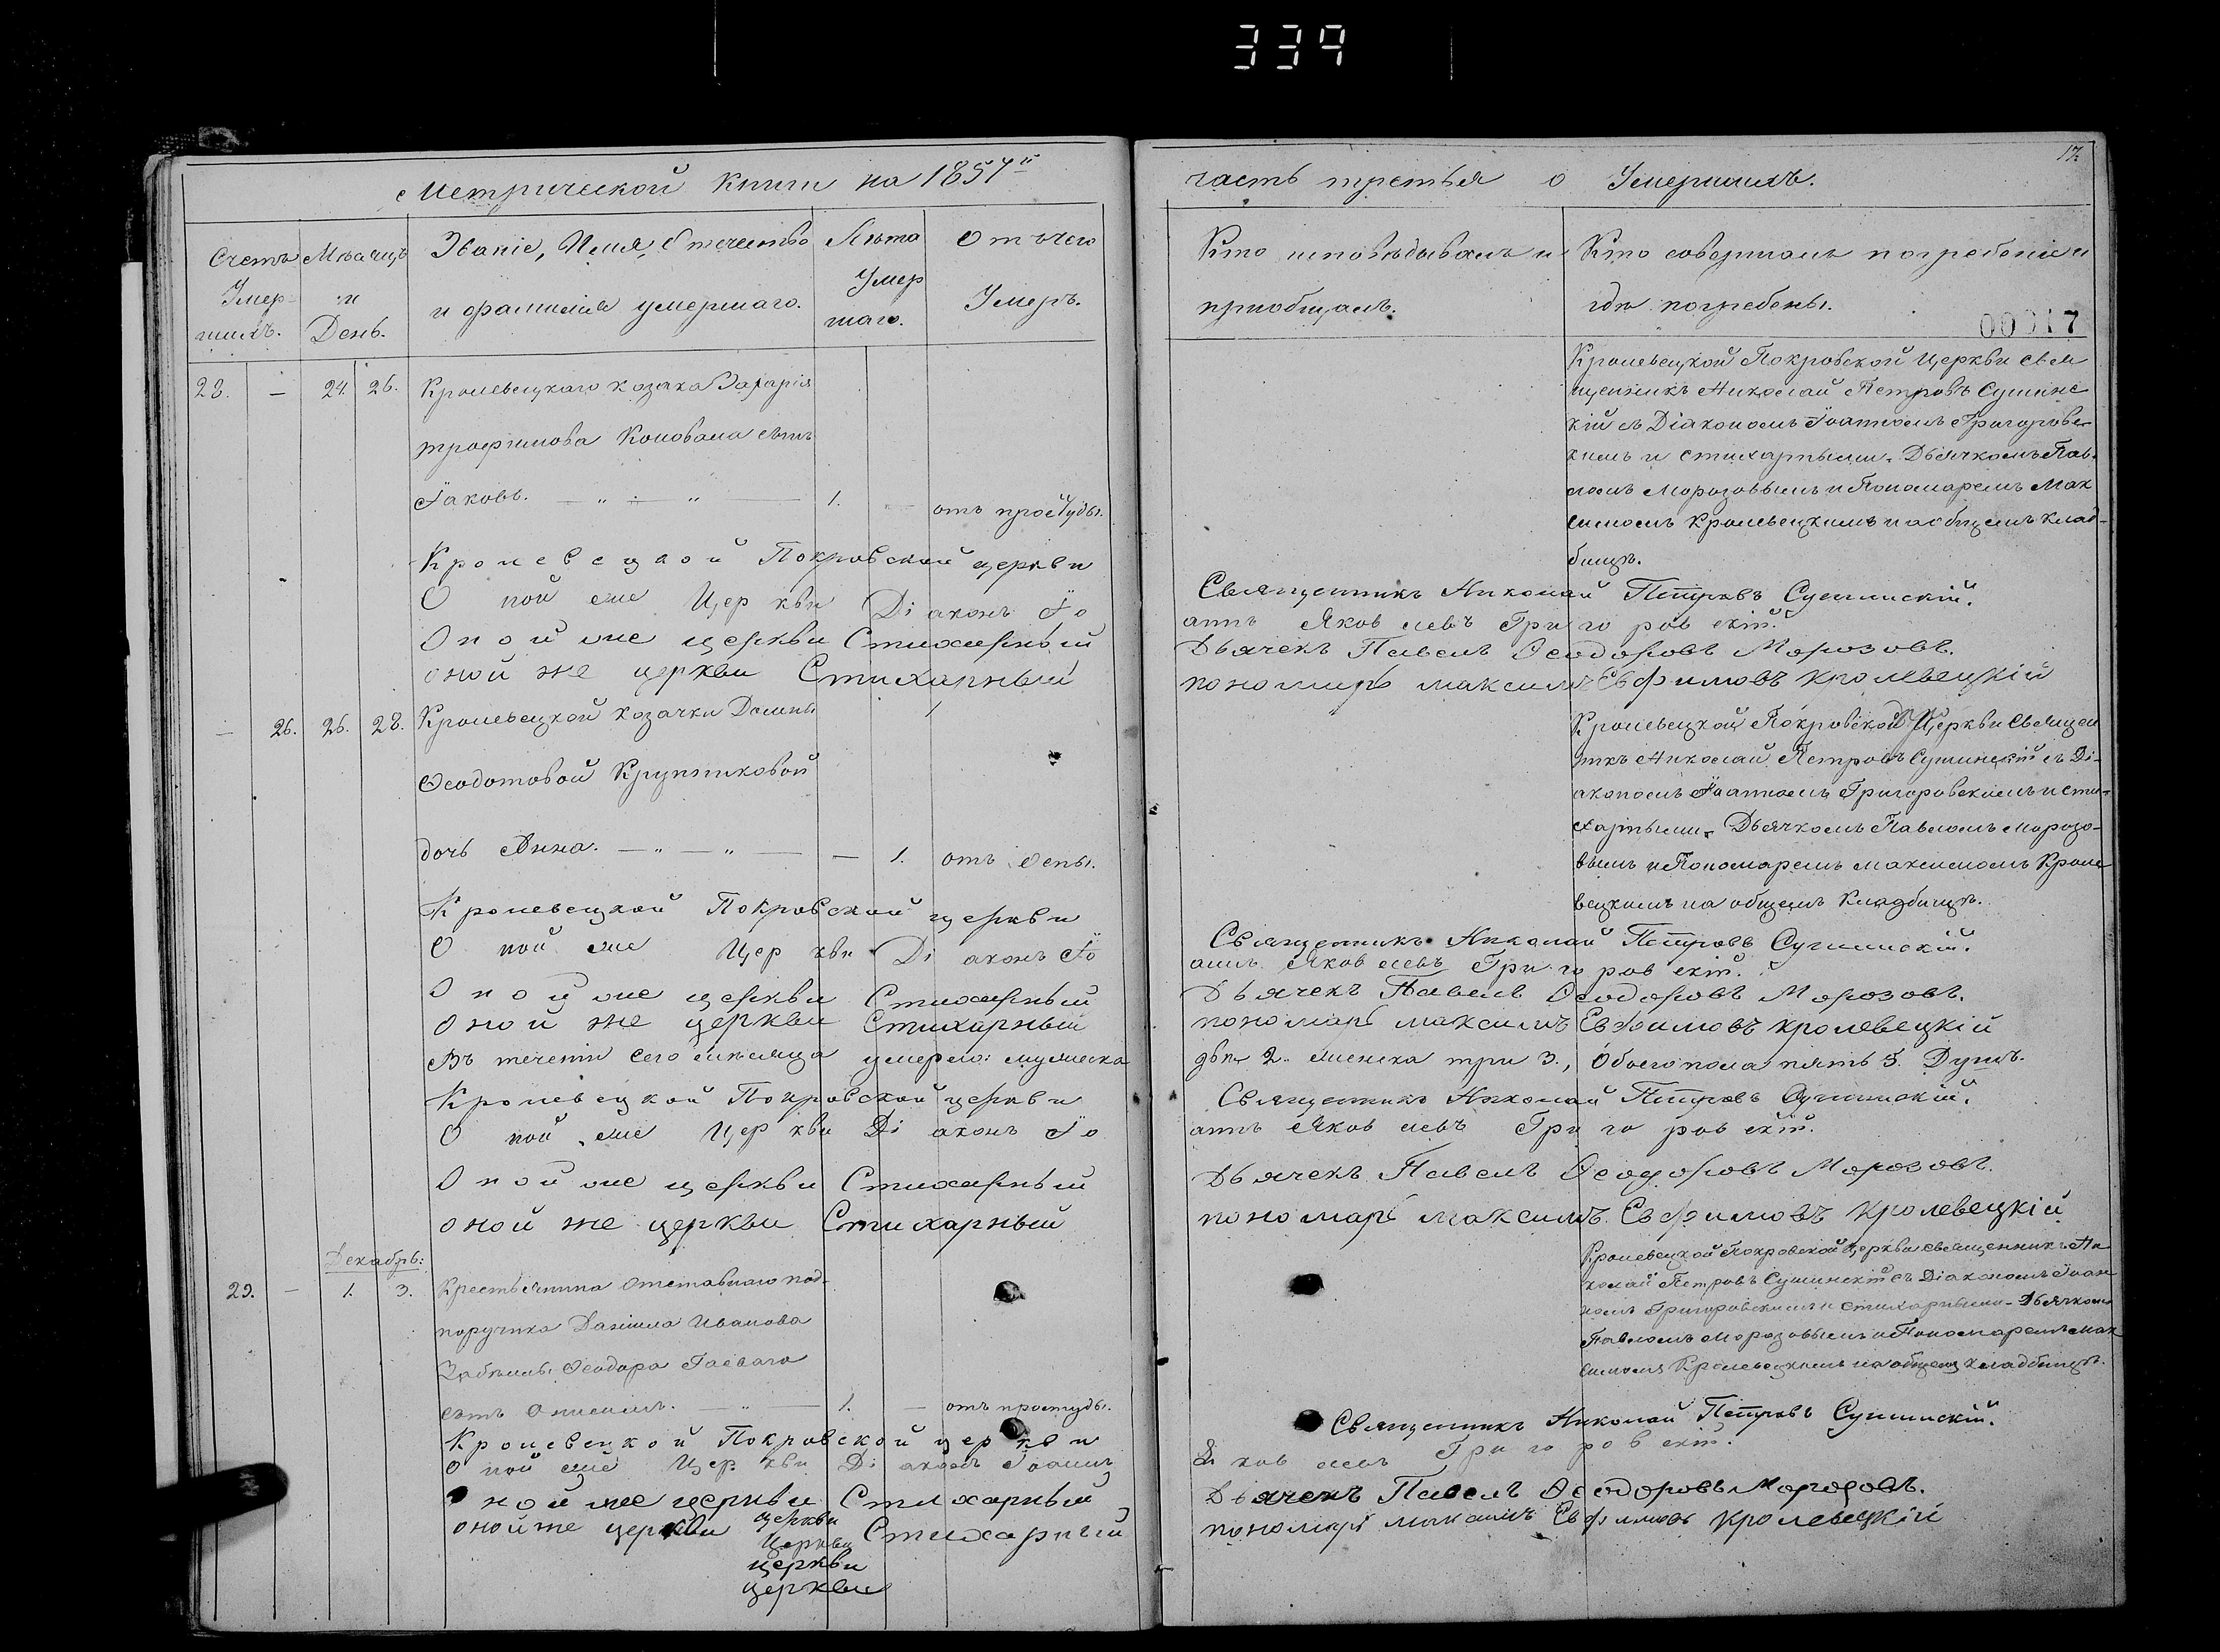 339
Метрической Книги на 1857й
часть третья о Умершихъ.
17.
Счетъ Умер-шихъ.
Мѣсяцъ и День.
Званіе, Имя, Отечество
и фамилія умершаго.
Лѣта Умер шаго.
Отъ чего Умеръ.
Кто исповѣдывалъ и
пріобщалъ.
Кто совершалъ погребеніе и
гдѣ погребены.
00017
28. — 24. 26. Кролевецкаго козака Захарія
трофимова Коновала сынъ
Іаковъ. — „ — „ — 1. — отъ простуды.
Кролевецкой Покровской Церкви Свя
щенникъ Николай Петровъ Сушинс
кій съ Діакономъ Іоанномъ Григоровс
кимъ и стихарными. Дьячкомъ Пав
ломъ Морозовымъ и Пономаремъ Мак
симомъ Кролевецкимъ на общемъ клад-
бищѣ.
Кролевецкой Покровской церкви Священникъ Николай Петровъ Сушинскій.
Оной же Церкви Діаконъ Іоаннъ Яковлевъ Григоровскій.
Оной же церкви Стихарный Дьячекъ Павелъ Ѳеодоровъ Морозовъ.
оной же церкви Стихарный пономарь максимъ Евфимовъ кролевецкій
— 26. 26. 28. Кролевецкой козачки Домны
Ѳеодотовой Крупниковой
дочь Анна. — „ — „ — — 1. отъ Оспы.
Кролевецкой Покровской Церкви Священ
никъ Николай Петровъ Сушинскій съ Ді-
акономъ Іоанномъ Григоровскимъ и сти-
харными. Дьячкомъ Павломъ Морозо-
вымъ и Пономаремъ Максимомъ Кроле
вецкимъ на общемъ Кладбищѣ.
Кролевецкой Покровской церкви Священникъ Николай Петровъ Сушинскій.
Оной же Церкви Діаконъ Іоаннъ Яковлевъ Григоровскій.
Оной же церкви Стихарный Дьячекъ Павелъ Ѳеодоровъ Морозовъ.
оной же церкви Стихарный пономарь максимъ Евфимовъ кролевецкій
Въ теченіи сего мѣсяца умерло: мужеска два 2. женска три 3., Обоего пола пять 5. Душъ.
Кролевецкой Покровской церкви Священникъ Николай Петровъ Сушинскій.
Оной же Церкви Діаконъ Іоаннъ Яковлевъ Григоровскій.
Оной же церкви Стихарный Дьячекъ Павелъ Ѳеодоровъ Морозовъ.
оной же церкви Стихарный пономарь максимъ Евфимовъ кролевецкій
Декабрь:
29. — 1. 3. Крестьянина Отставнаго под-
поручика Даніила Иванова
Ѳеодора Гаеваго
сынъ Онисимъ. — „ — 1. — отъ простуды.
Кролевецкой Покровской Церкви священникъ Ни
колай Петровъ Сушинскій съ Діакономъ Іоан
номъ Григоровскимъ и стихарными – Дьячкомъ
Павломъ Морозовымъ и Пономаремъ Мак
симомъ Кролевецкимъ на общемъ кладбищѣ.
Кролевецкой Покровской церкви Священникъ Николай Петровъ Сушинскій.
Оной же Церкви Діаконъ Іоаннъ Яковлевъ Григоровскій.
Оной же церкви Стихарный Дьячекъ Павелъ Ѳеодоровъ Морозовъ.
оной же церкви Стихарный пономарь максимъ Евфимовъ кролевецкій
церкви
Церкви
церкви
церкви